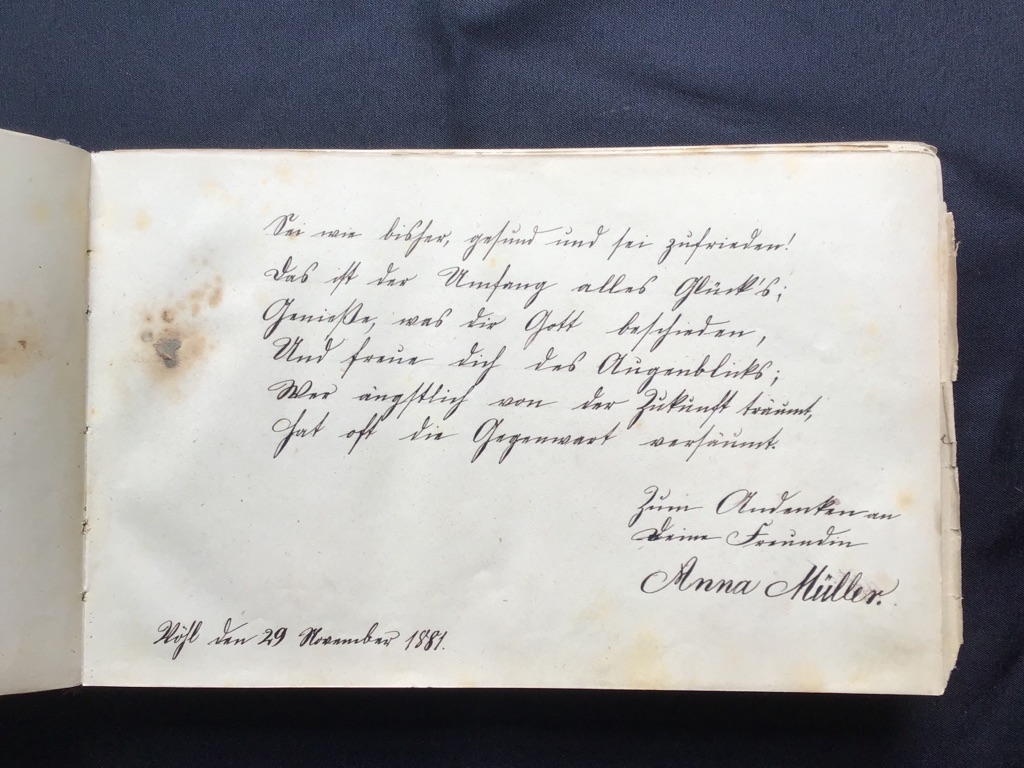 Sei wie bisher, gesund und sei zufrieden!
Das ist der Umfang alles Glück's;
Genieße, was dir Gott beschieden,
Und freue dich des Augenblicks;
Wer ängstlich von der Zukunft träumt,
Hat oft die Gegenwart versäumt.
Zum Andenken an
Deine Freundin
Anna Müller.
Vöhl den 29 November 1881.